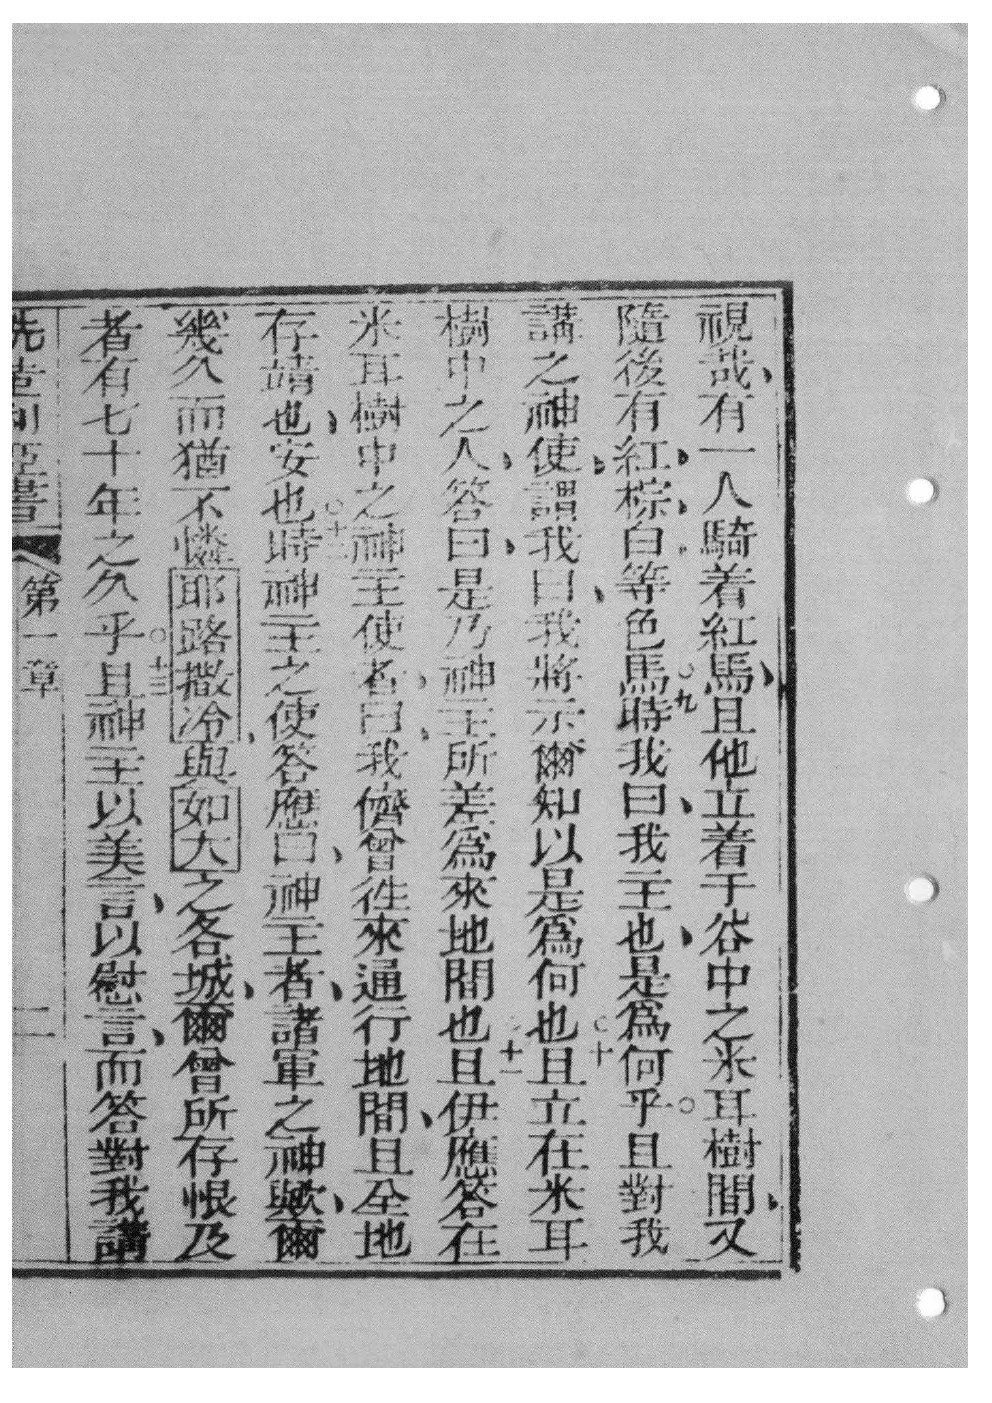 視哉、有一人騎着紅馬、且他立着于谷中之米耳樹間、又
隨後有紅、棕、白等色馬○九時我曰、我主也、是爲何乎○且對我
講之神使、謂我曰、我將示爾知以是爲何也○十且立在米耳
樹中之人、答曰、是乃神主所差爲來地間也○十一且伊應答在
米耳樹中之神主使者、曰、我儕曾徃來通行地間、且全地
存靖也、安也○十二時神主之使答應曰、神主者、諸軍之神歟、爾
幾久而猶不憐耶路撒冷、與如大之各城、爾曾所存恨及
者有七十年之久乎○十三且神主以美言、以慰言、而答對我講
先造利亞書 第一章 二